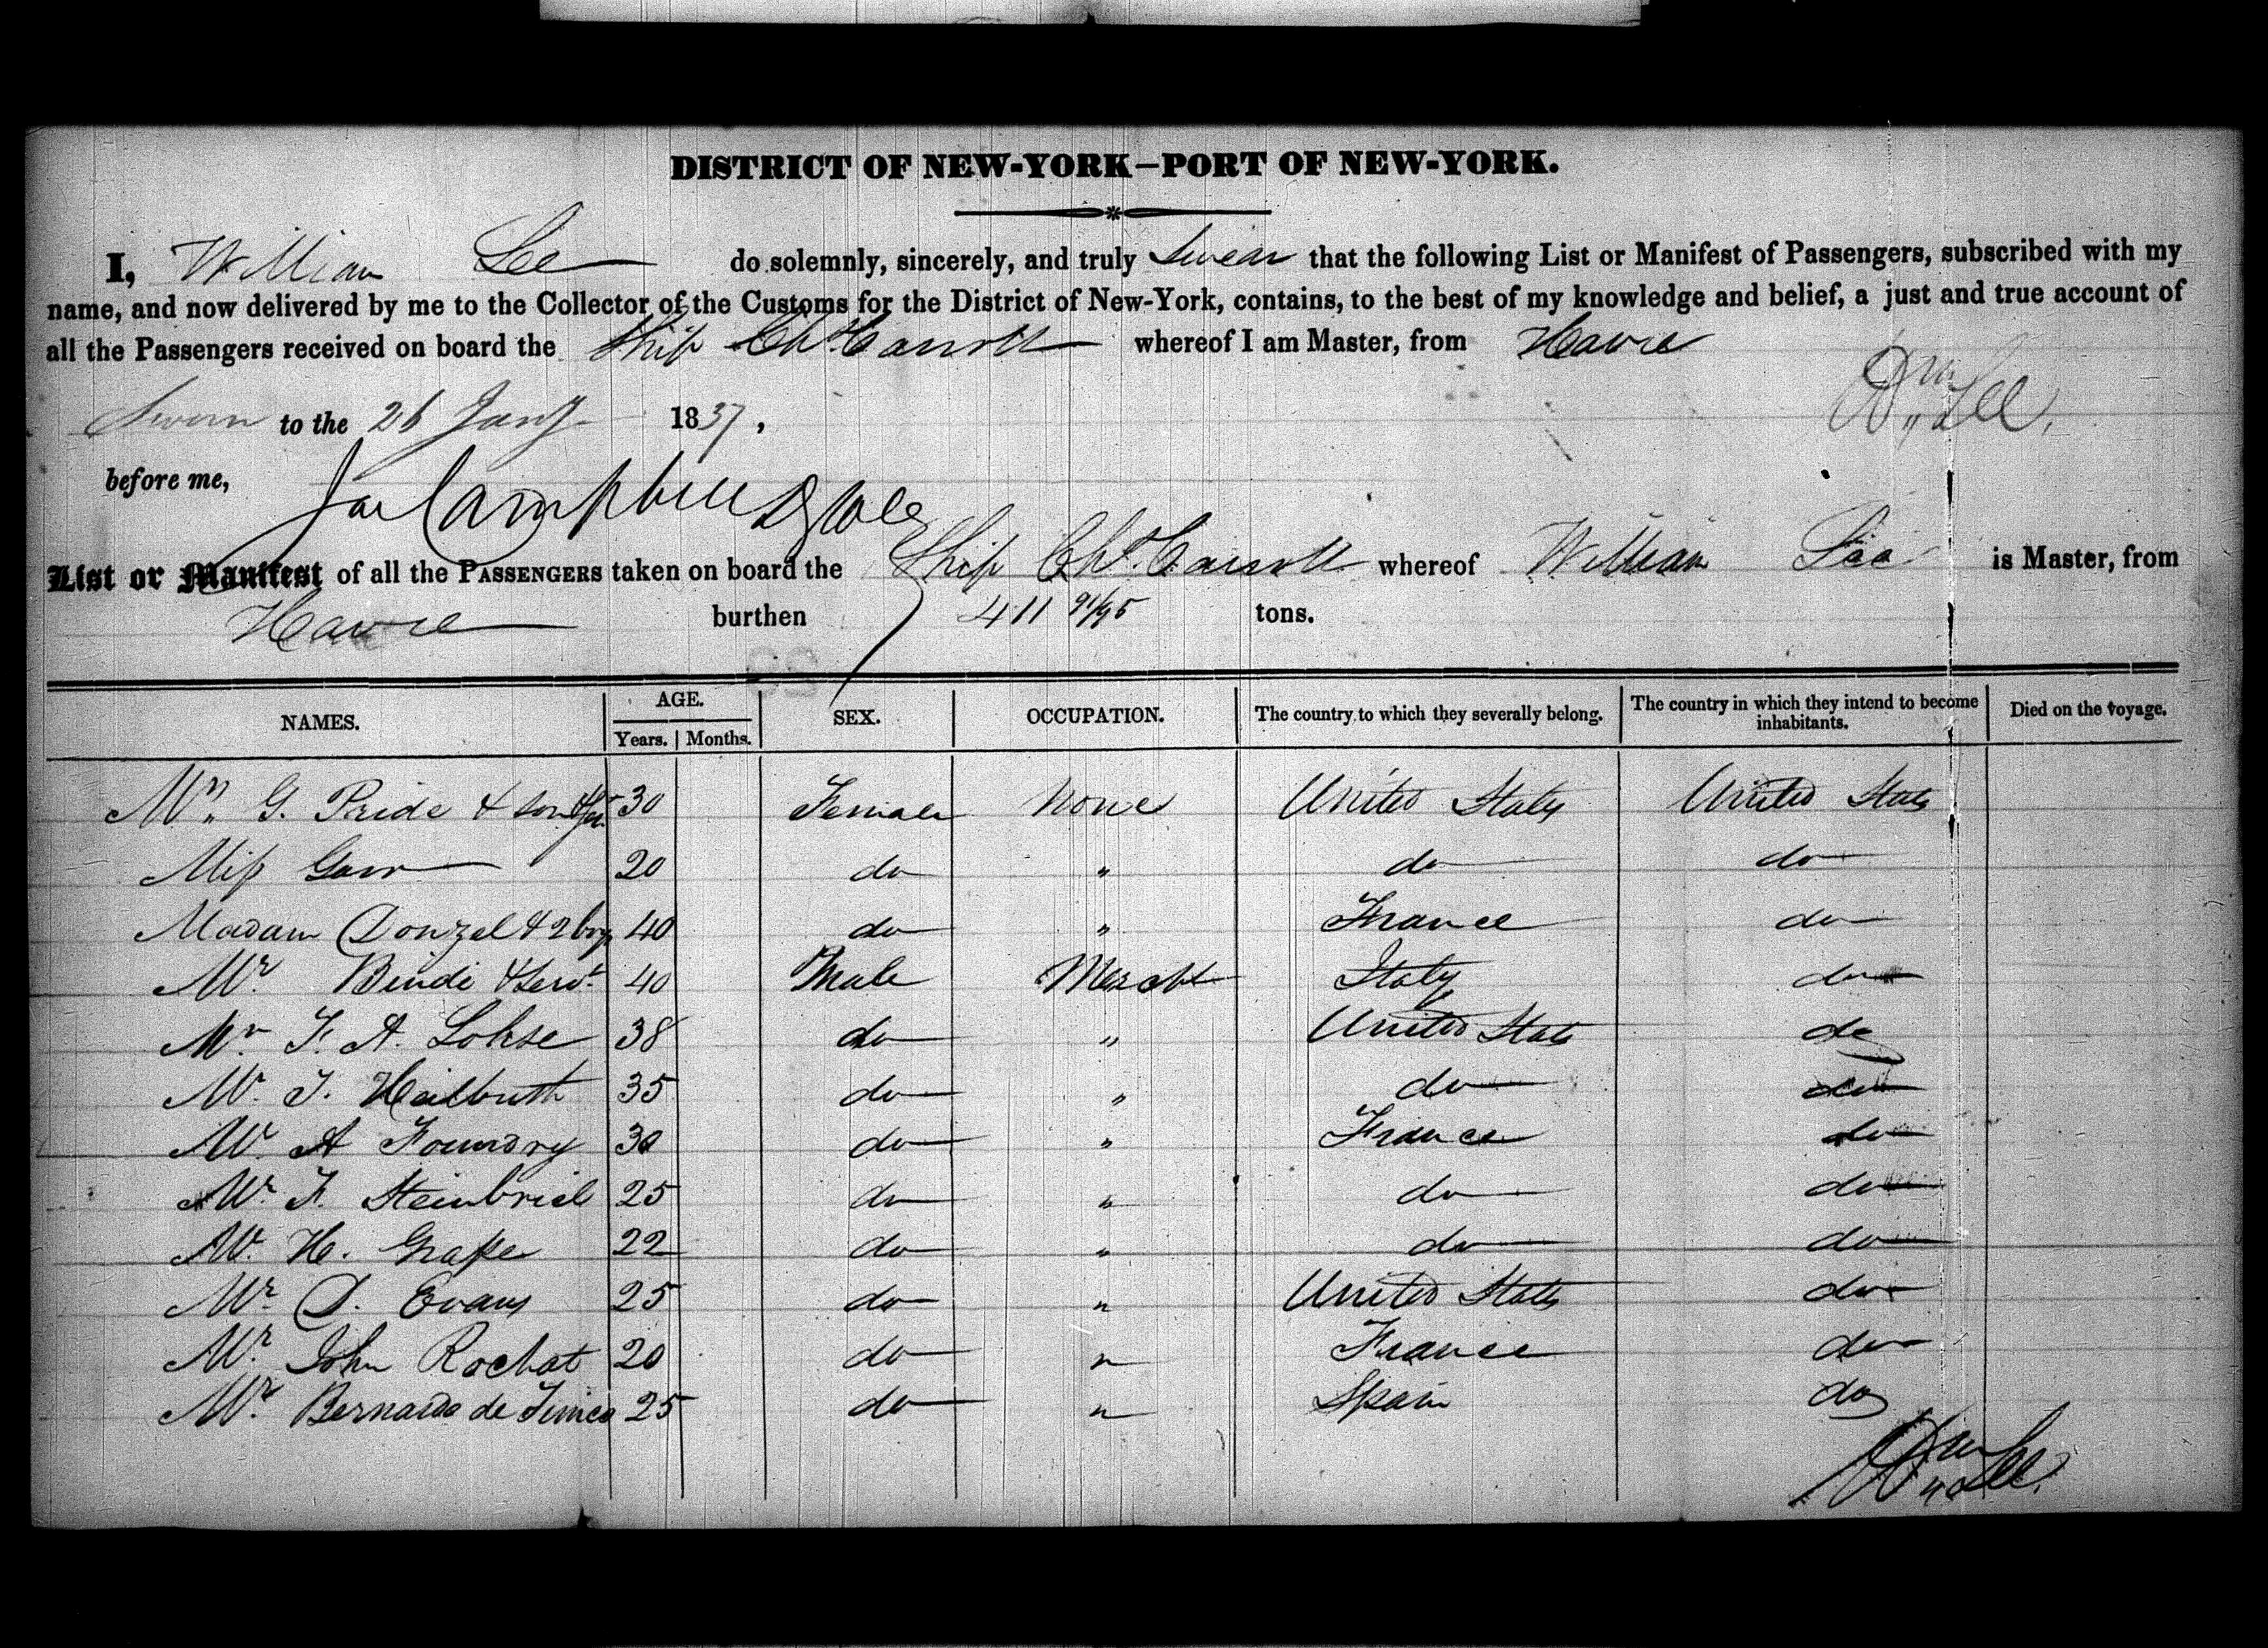 DISTRICT OF NEW-YORK—PORT OF NEW-YORK.
I, William Lee do solemnly, sincerely, and truly swear that the following List or Manifest of Passengers, subscribed with my
name, and now delivered by me to the Collector of the Customs for the District of New-York, contains, to the best of my knowledge and belief, a just and true account of
all the Passengers received on board the Ship Chs. Carroll whereof I am Master, from Havre
Wm Lee.
Sworn to the 26 Jany 1837,
before me,
Campbell
List or Manifest of all the PASSENGERS taken on board the Ship Chs. Carroll whereof William Lee is Master, from
Havre burthen 411 91/95 tons.
NAMES. AGE. Years. Months. SEX. OCCUPATION. The country to which they severally belong. The country in which they intend to become inhabitants. Died on the voyage.
Mrs. G. Pride & son 30 Female None United States United States
Miss 20 do " do do
Madam Donzel & 2 boys 40 do " France do
Mr. Bindi & servt. 40 Male Mercht Italy do
Mr F. A. Lohse 38 do " United States do
Mr. J. Heilbuth 35 do " do do
Mr. A Foundry 30 do " France do
Mr. F. Steinbriel 25 do " do do
Mr. H. Grape 22 do " do do
Mr. D. Evans 25 do " United States do
Mr. John Rochat 20 do " France do
Mr. Bernardo de 25 do " Spain do
Wm Lee.